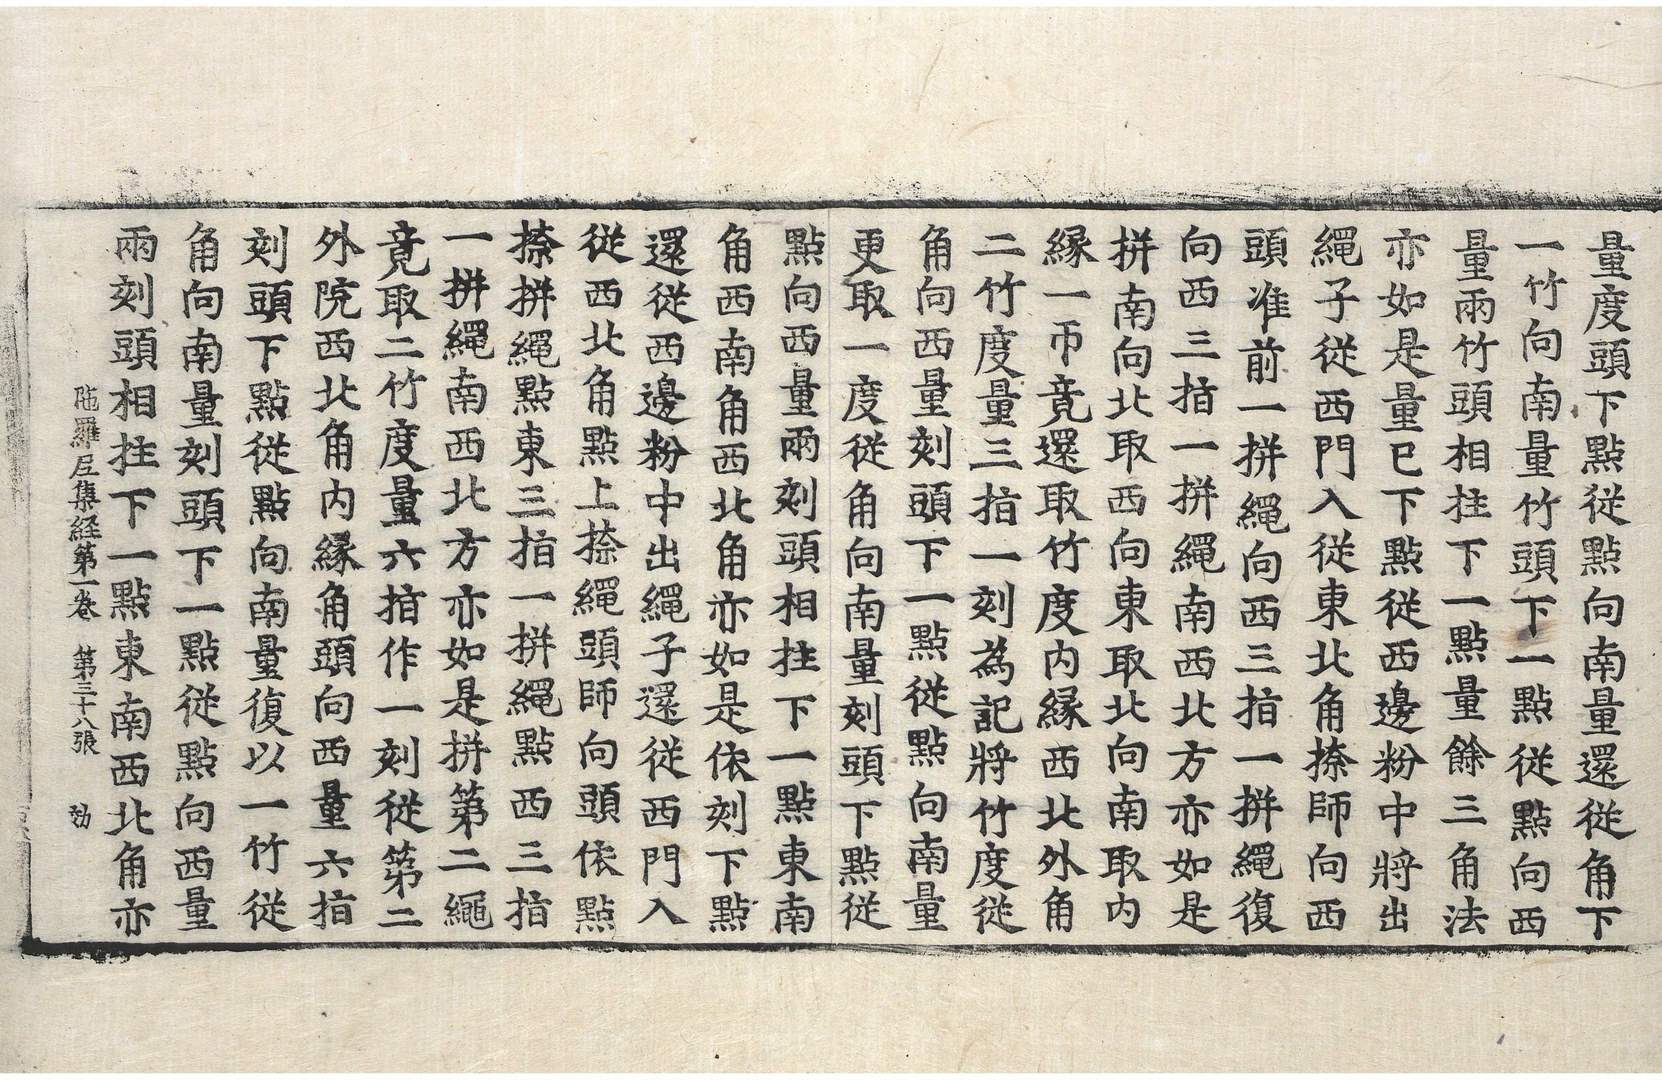 量度頭下點從點向南量還從角下
一竹向南量竹頭下一點從點向西
量兩竹頭相拄下一點量餘三角法
亦如是量已下點從西邊粉中將出
繩子從西門入從東北角捺師向西
頭准前一拼繩向西三指一拼繩復
向西三指一拼繩南西北方亦如是
拼南向北取西向東取北向南取內
緣一帀竟還取竹度內緣西北外角
二竹度量三指一刻為記將竹度從
角向西量刻頭下一點從點向南量
更取一度從角向南量刻頭下點從
點向西量兩刻頭相拄下一點東南
角西南角西北角亦如是依刻下點
還從西邊粉中出繩子還從西門入
從西北角點上捺繩頭師向頭依點
捺拼繩點東三指一拼繩點西三指
一拼繩南西北方亦如是拼第二繩
竟取二竹度量六指作一刻從第二
外院西北角內緣角頭向西量六指
刻頭下點從點向南量復以一竹從
角向南量刻頭下一點從點向西量
兩刻頭相拄下一點東南西北角亦
陁羅尼集経第一卷 第三十八張 劾